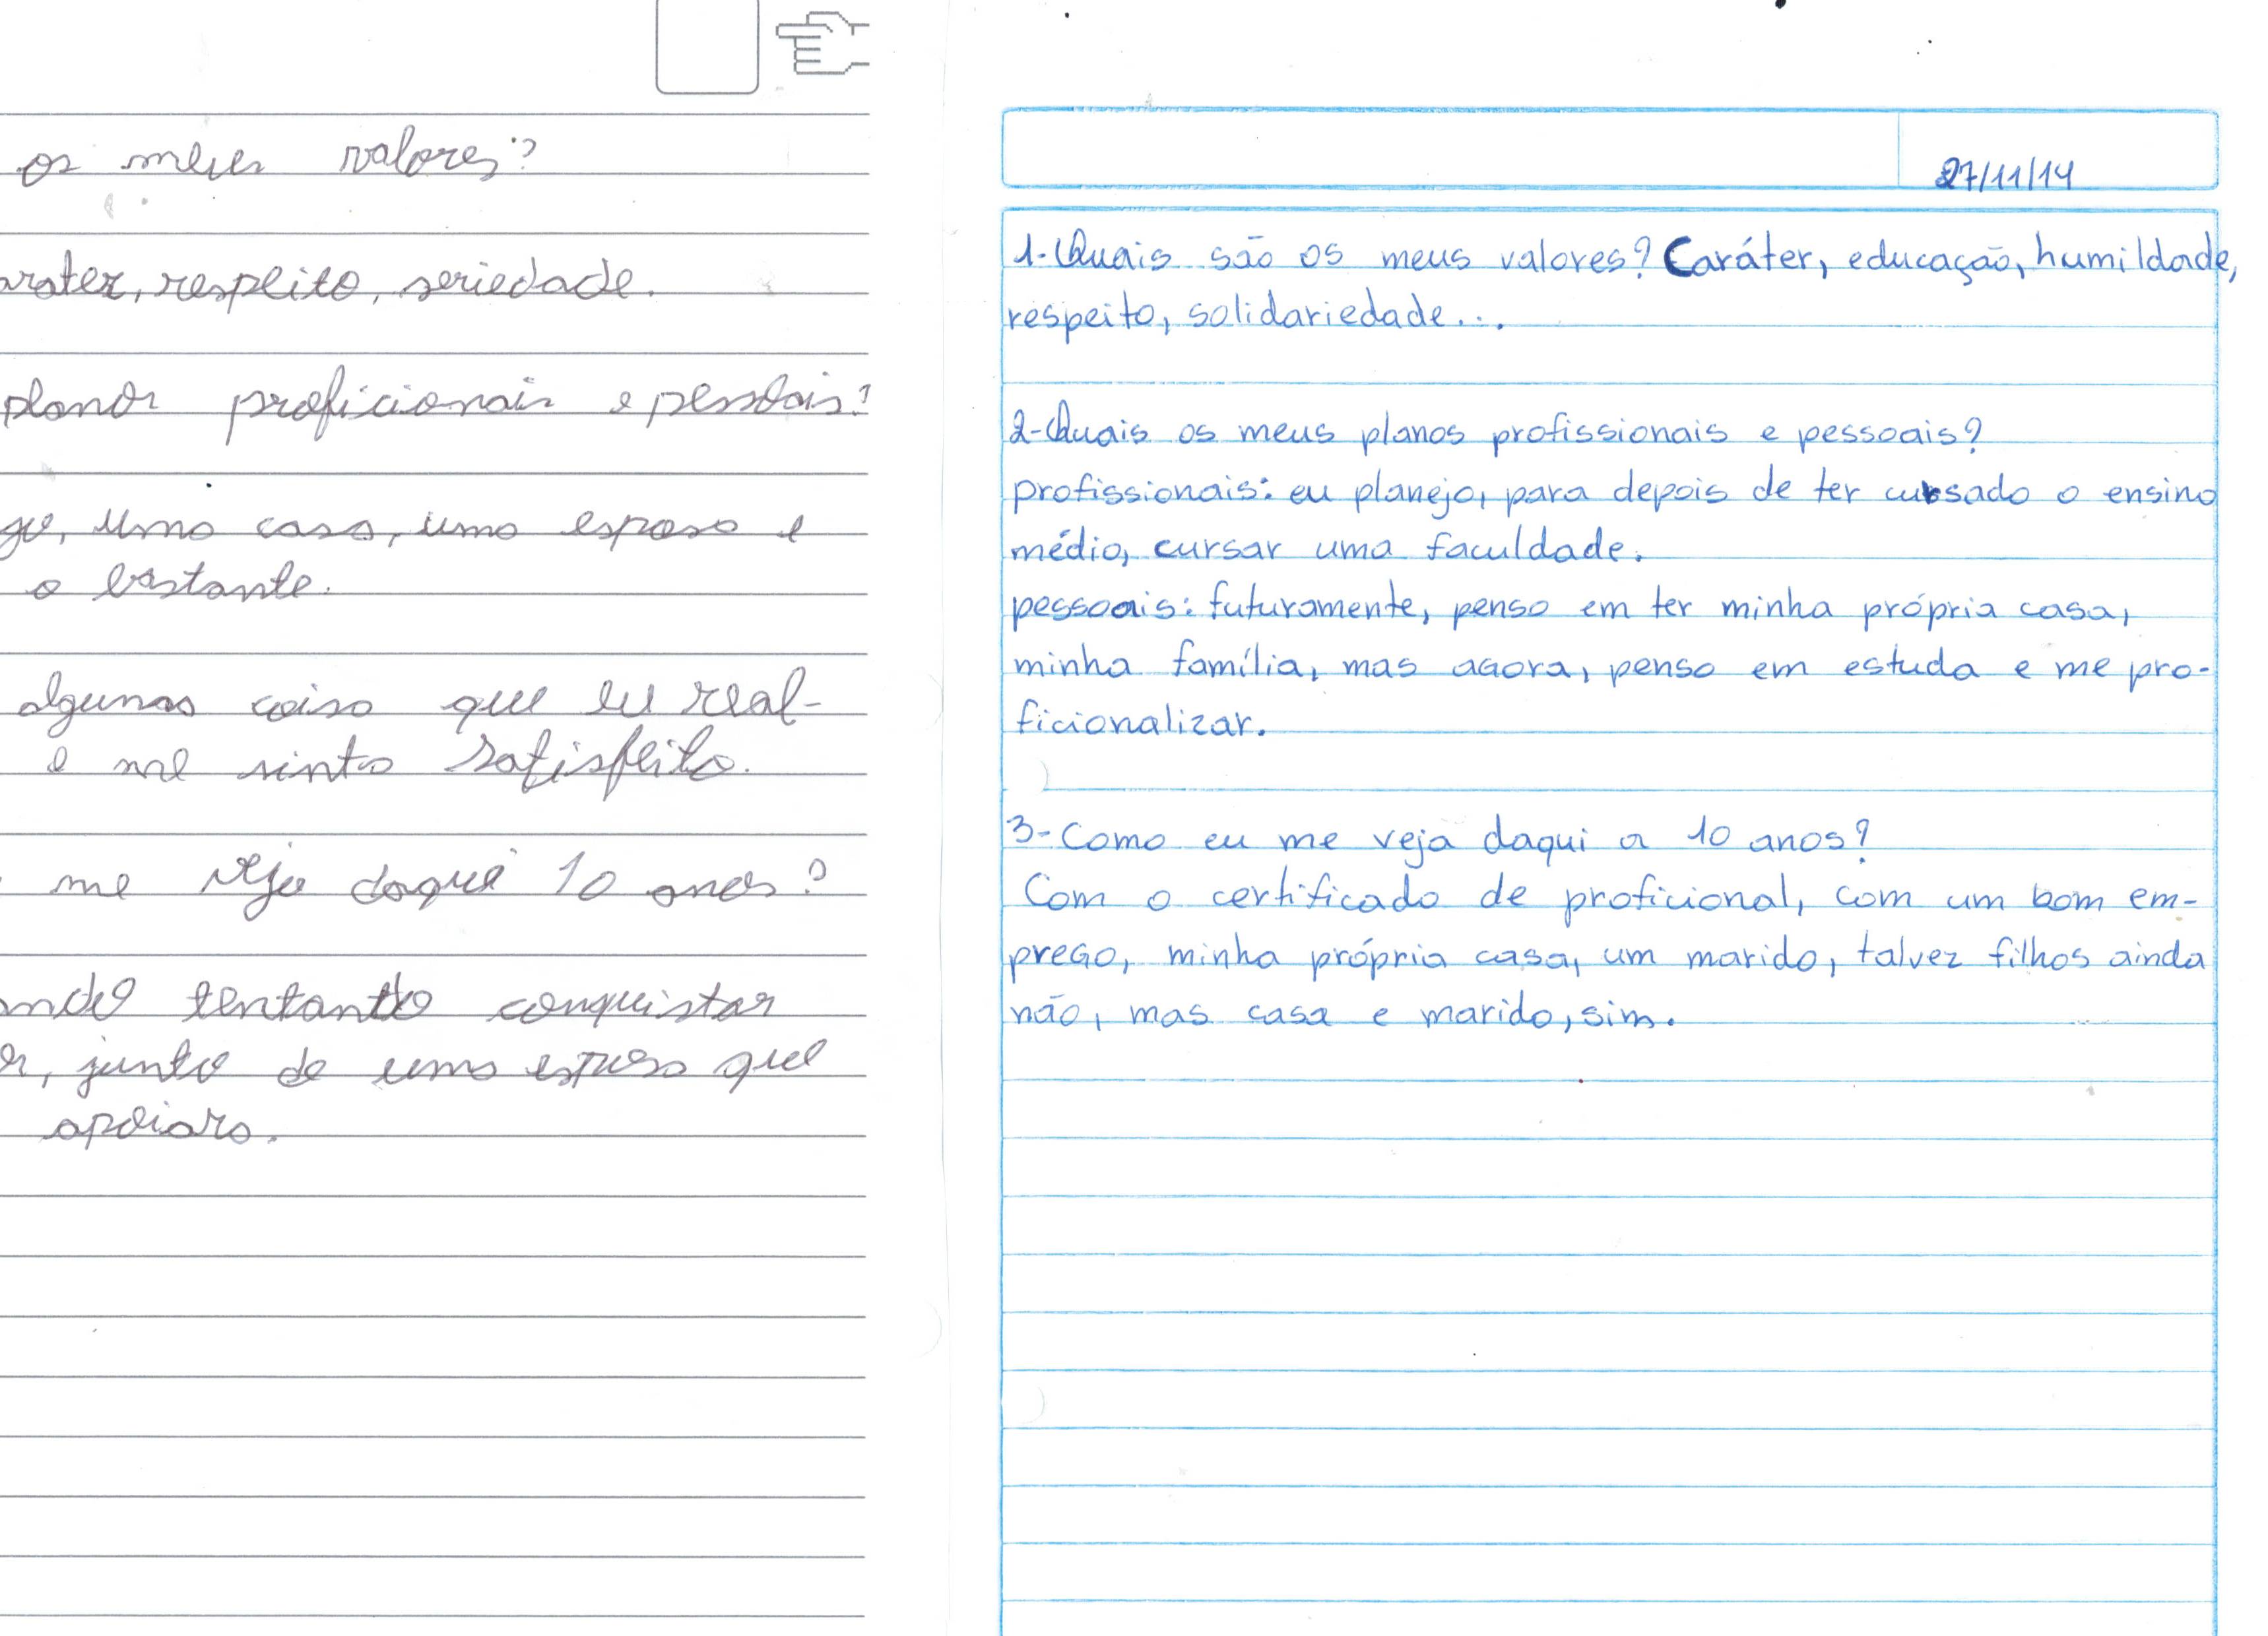 os meus valores?
rater, respeito, seriedade.
planos proficionais e pessoais?
go, uma casa, uma esposa e
o bastante.
algumas coisa que eu real-
e me sinto satisfeito.
me vejo daqui 10 anos?
ndo tentando conquistar
junto de uma esposa que
apoiara.
27/11/14
1-Quais são os meus valores? Caráter, educação, humildade,
respeito, solidariedade...
2-Quais os meus planos profissionais e pessoais?
profissionais: eu planejo, para depois de ter cursado o ensino
médio, cursar uma faculdade.
pessoais: futuramente, penso em ter minha própria casa,
minha família, mas agora, penso em estuda e me pro-
ficionalizar.
3-Como eu me veja daqui a 10 anos?
Com o certificado de proficional, com um bom em-
prego, minha própria casa, um marido, talvez filhos ainda
não, mas casa e marido, sim.